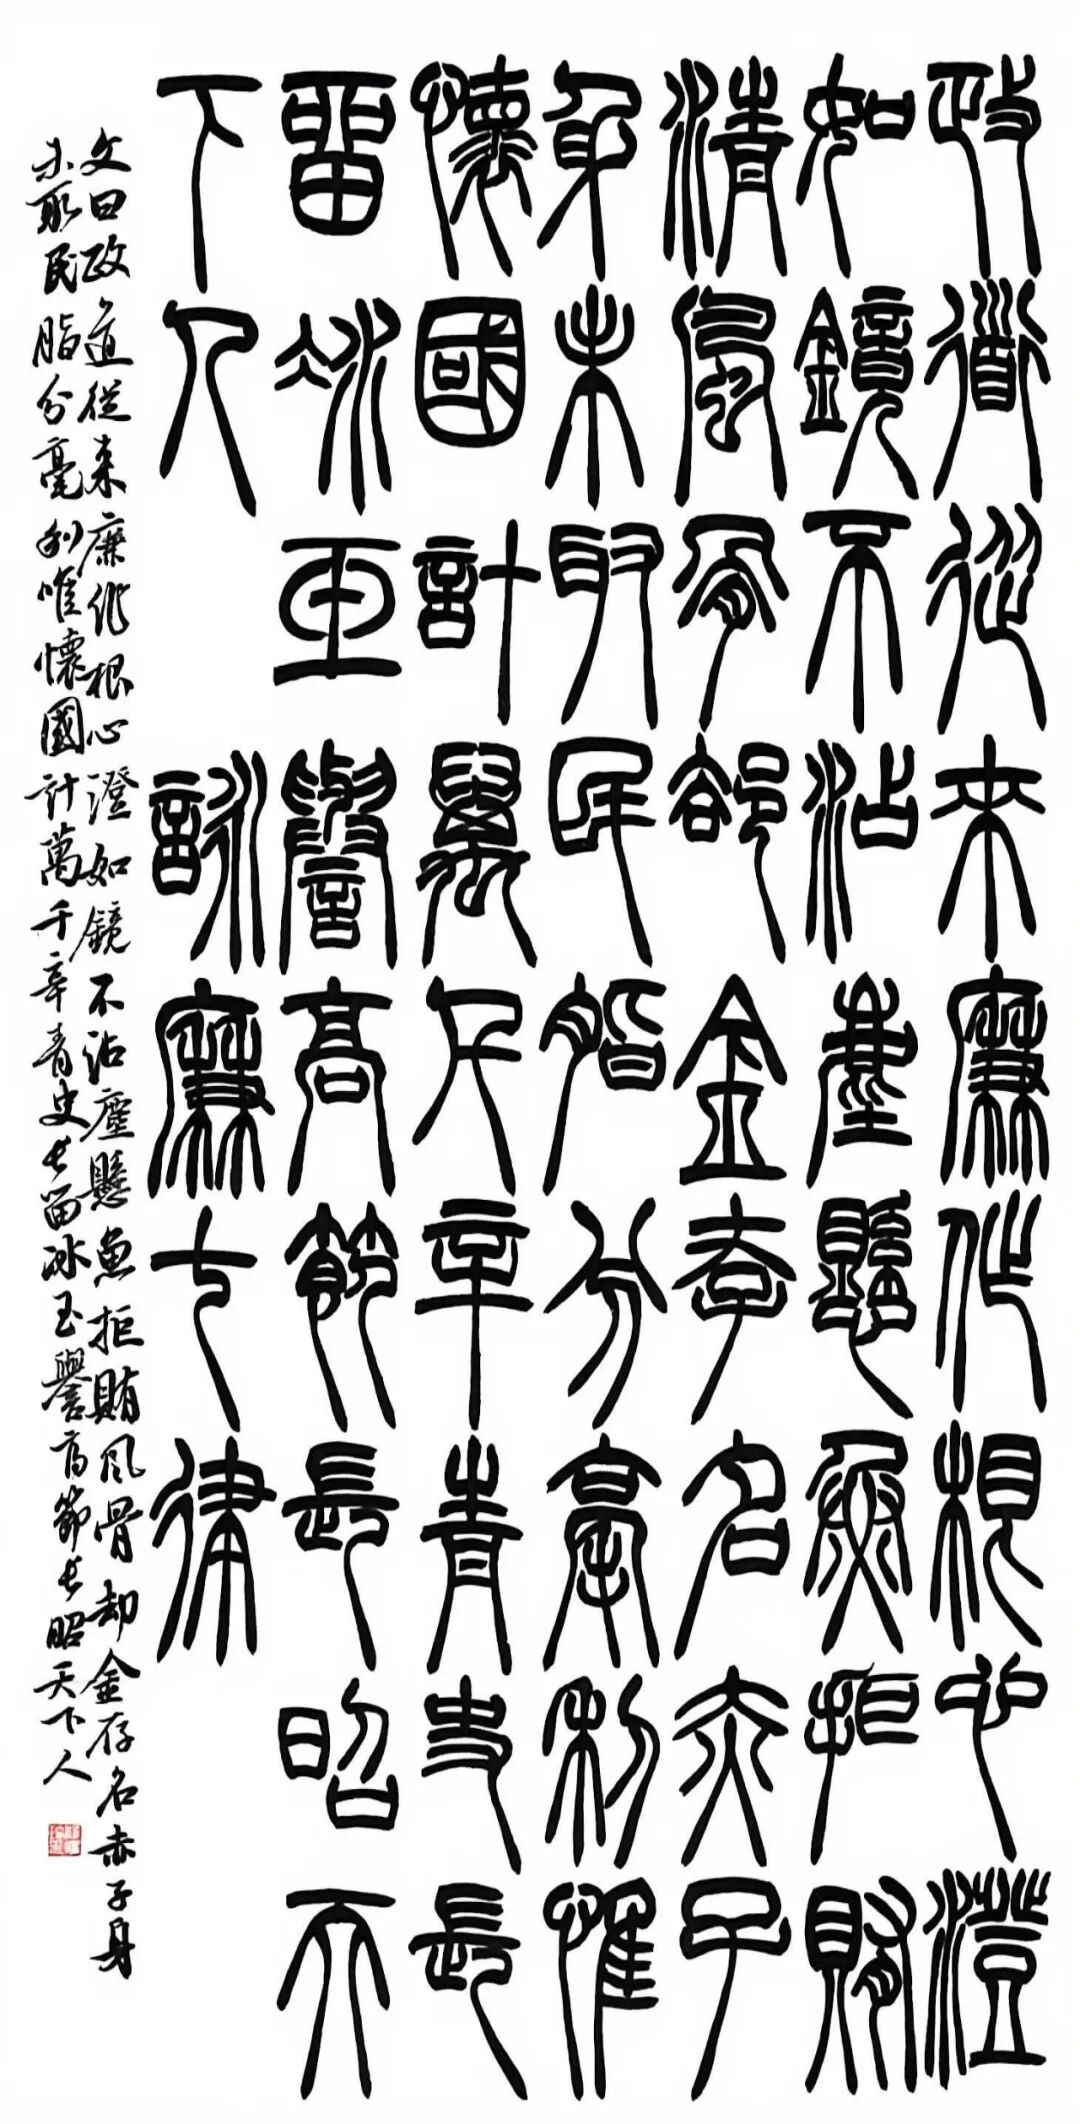 政道從來廉作根心澄
如鏡不沾塵懸魚拒賄
清風骨卻金存名赤子
身未取民脂分毫利惟
懷國計萬千辛青史長
留冰玉譽高節長昭天
下人 詠廉七律
文曰政道從来廉作根心澄如鏡不沾塵懸魚拒賄風骨却金存名赤子身
未取民脂分毫利唯懷國計萬千辛青史长留冰玉譽高節长昭天下人